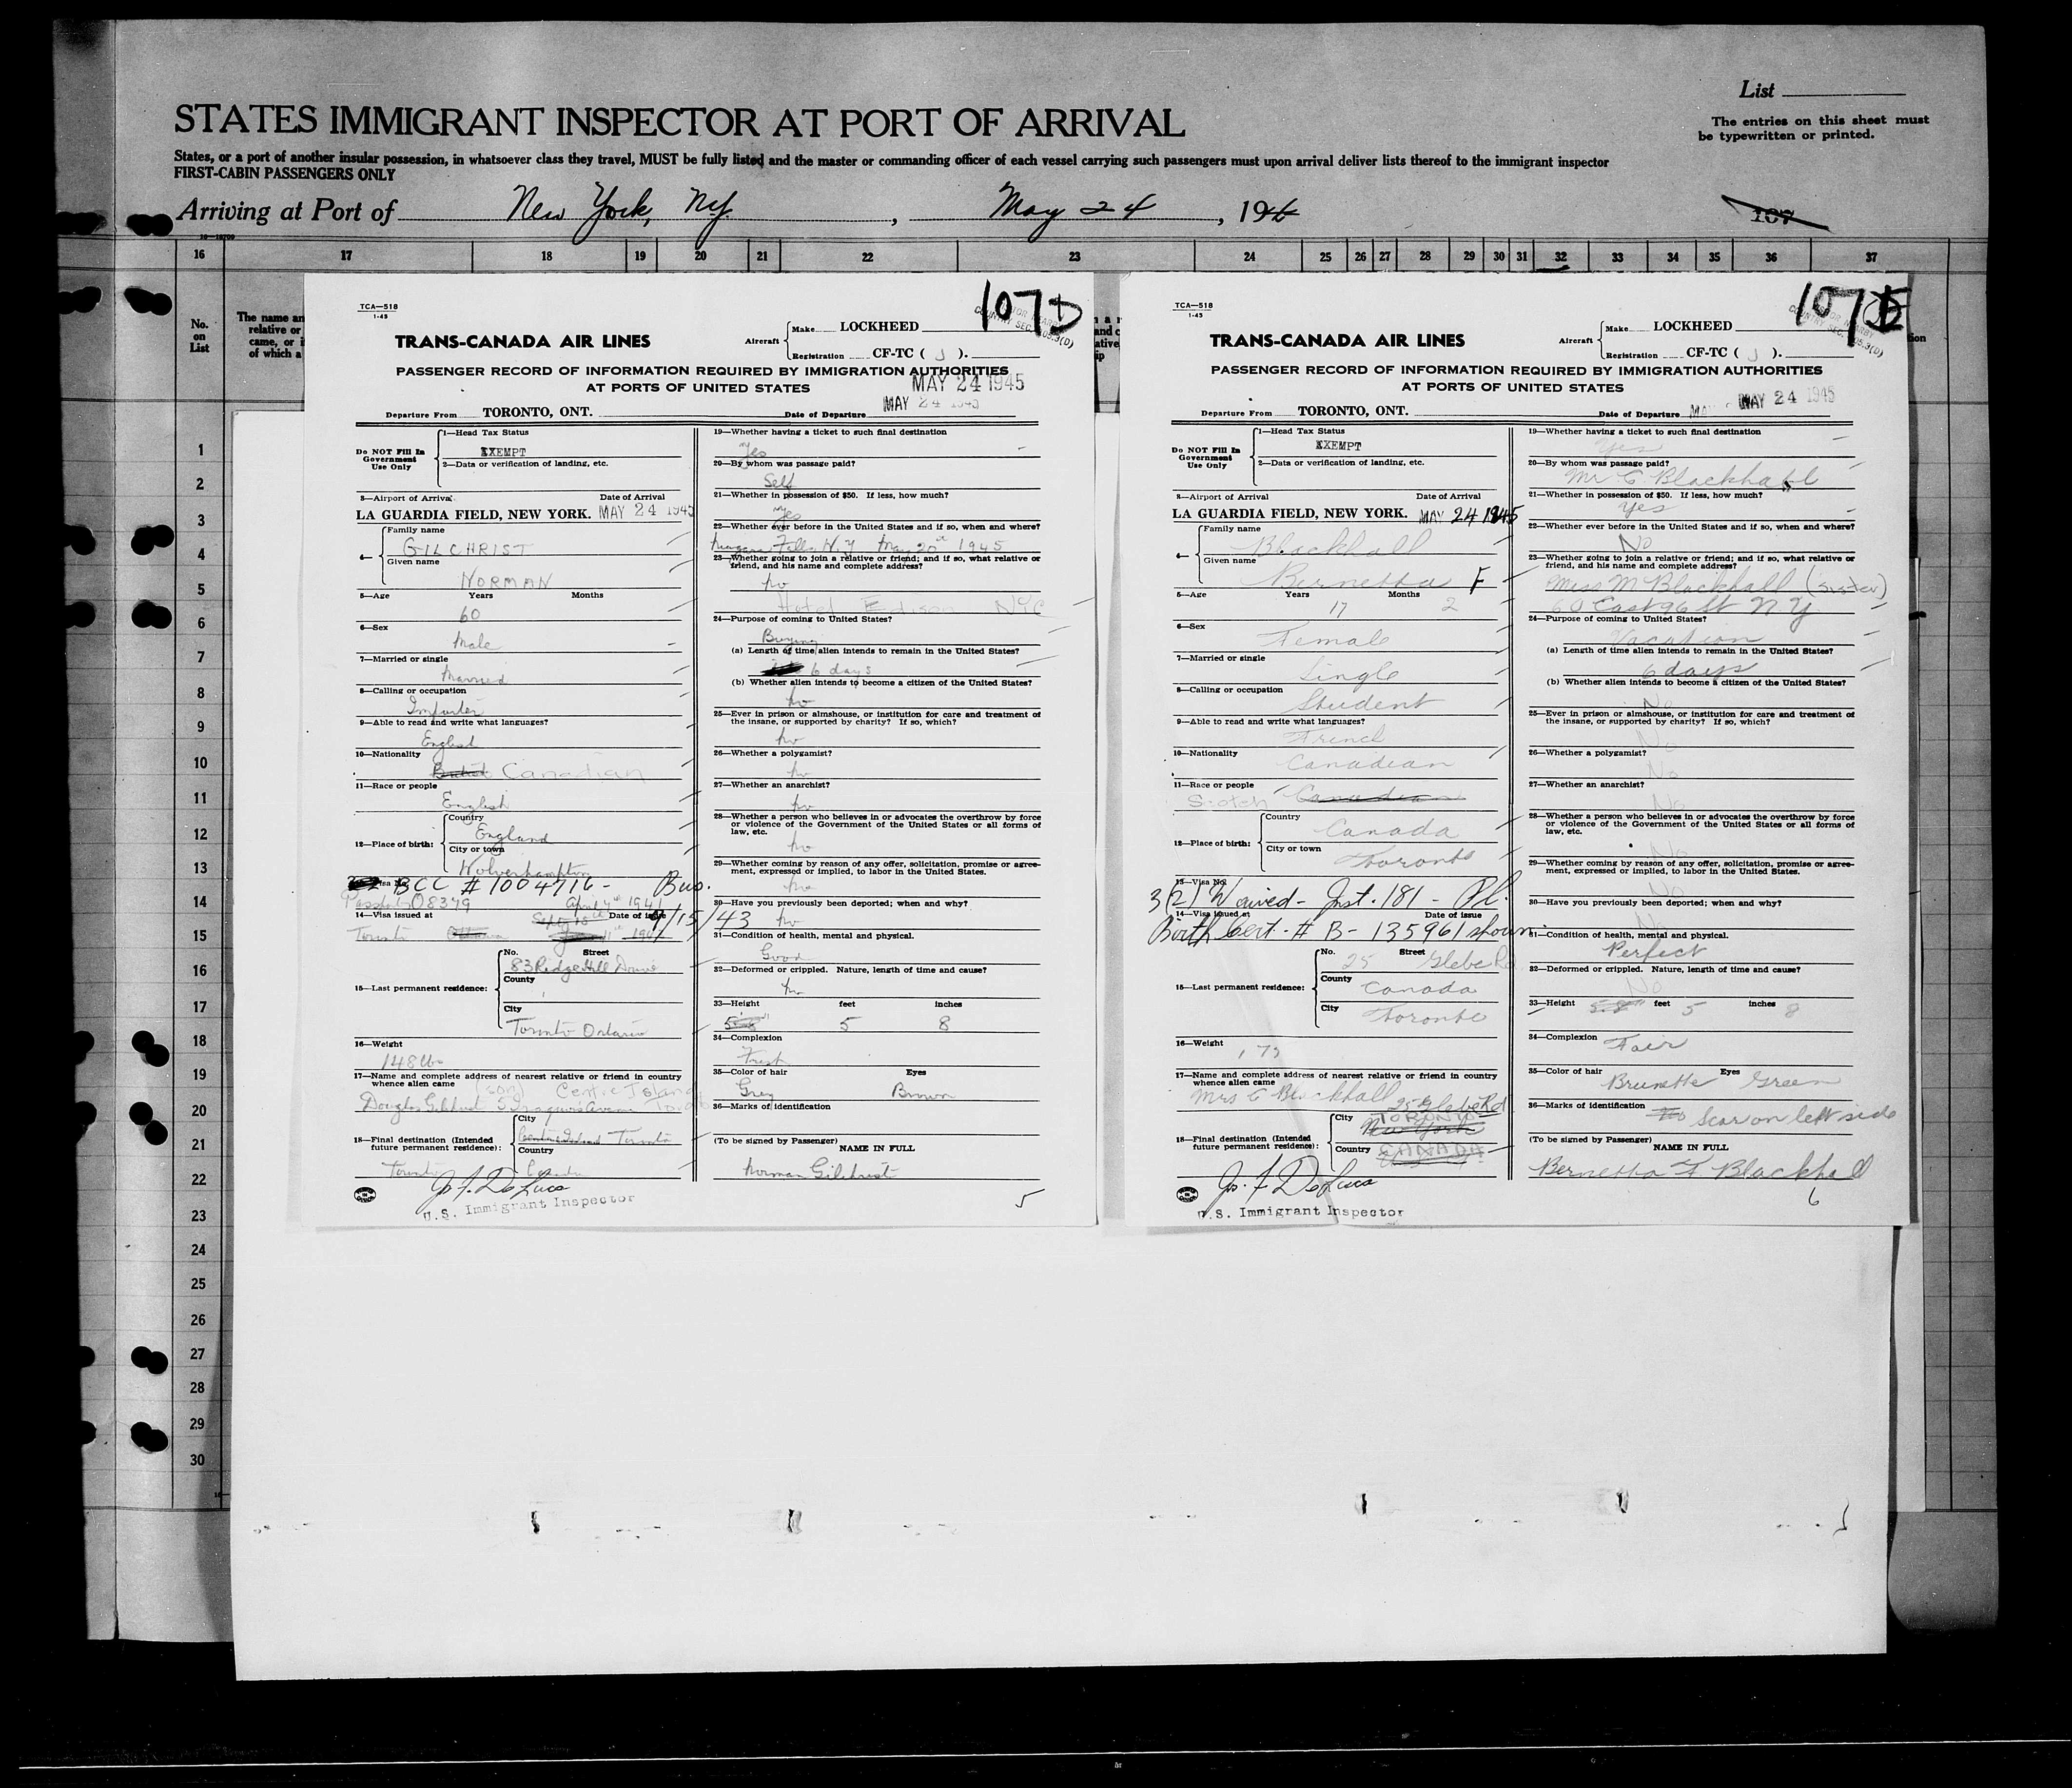 STATES IMMIGRANT INSPECTOR AT PORT OF ARRIVAL
List
The entries on this sheet must
be typewritten or printed.
States, or a port of another insular possession, in whatsoever class they travel, MUST be fully listed and the master or commanding officer of each vessel carrying such passengers must upon arrival deliver lists thereof to the immigrant inspector
FIRST-CABIN PASSENGERS ONLY
Arriving at Port of New York, NY. , May 24 , 19
107
16 17 18 19 20 21 22 23 24 25 26 27 28 29 30 31 32 33 34 35 36 37
No.
on
List
The name an
relative or
came, or i
of which a
1
2
3
4
5
6
7
8
9
10
11
12
13
14
15
16
17
18
19
20
21
22
23
24
25
26
27
28
29
30
TCA—518
1-45
107 D
TRANS-CANADA AIR LINES
Aircraft
Make LOCKHEED
Registration CF-TC ( J ).
PASSENGER RECORD OF INFORMATION REQUIRED BY IMMIGRATION AUTHORITIES
AT PORTS OF UNITED STATES
MAY 24 1945
Departure From TORONTO, ONT. Date of Departure MAY 24 1945
Do NOT Fill In
Government
Use Only
1—Head Tax Status
EXEMPT
2—Data or verification of landing, etc.
3—Airport of Arrival Date of Arrival
LA GUARDIA FIELD, NEW YORK. MAY 24 1945
4—
Family name
GILCHRIST
Given name
NORMAN
5—Age Years Months
60
6—Sex
Male
7—Married or single
Married
8—Calling or occupation
Importer
9—Able to read and write what languages?
English
10—Nationality
British Canadian
11—Race or people
English
12—Place of birth:
Country
England
City or town
Wolverhampton
BCC # 1004716 - Bus.
Passport 08379 April 7th 1941
14—Visa issued at Date of issue
Toronto Ottawa 9/15/43
15—Last permanent residence:
No. Street
83 Ridge Hill Drive
County
City
Toronto Ontario
16—Weight
148 lbs
17—Name and complete address of nearest relative or friend in country
whence alien came
(son) Centre Island
Douglas Gilchrist
18—Final destination (Intended
future permanent residence):
City
Centre Island Toronto
Country
Toronto Canada
Jo. F. DeLuca
U.S. Immigrant Inspector
19—Whether having a ticket to such final destination
Yes
20—By whom was passage paid?
Self
21—Whether in possession of $50. If less, how much?
Yes
22—Whether ever before in the United States and if so, when and where?
Niagara Falls N.Y May 20th 1945
23—Whether going to join a relative or friend; and if so, what relative or
friend, and his name and complete address?
No
Hotel Edison NYC
24—Purpose of coming to United States?
Buying
(a) Length of time alien intends to remain in the United States?
6 days
(b) Whether alien intends to become a citizen of the United States?
No
25—Ever in prison or almshouse, or institution for care and treatment of
the insane, or supported by charity? If so, which?
No
26—Whether a polygamist?
No
27—Whether an anarchist?
No
28—Whether a person who believes in or advocates the overthrow by force
or violence of the Government of the United States or all forms of
law, etc.
No
29—Whether coming by reason of any offer, solicitation, promise or agree-
ment, expressed or implied, to labor in the United States.
No
30—Have you previously been deported; when and why?
No
31—Condition of health, mental and physical.
Good
32—Deformed or crippled. Nature, length of time and cause?
No
33—Height feet inches
5 8
34—Complexion
Fresh
35—Color of hair Eyes
Grey Brown
36—Marks of identification
(To be signed by Passenger) NAME IN FULL
Norman Gilchrist
5
TCA—518
1-45
107 E
TRANS-CANADA AIR LINES
Aircraft
Make LOCKHEED
Registration CF-TC ( J ).
PASSENGER RECORD OF INFORMATION REQUIRED BY IMMIGRATION AUTHORITIES
AT PORTS OF UNITED STATES
Departure From TORONTO, ONT. Date of Departure MAY 24 1945
Do NOT Fill In
Government
Use Only
1—Head Tax Status
EXEMPT
2—Data or verification of landing, etc.
3—Airport of Arrival Date of Arrival
LA GUARDIA FIELD, NEW YORK. MAY 24 1945
4—
Family name
Blackhall
Given name
Bernetta F
5—Age Years Months
17 2
6—Sex
Female
7—Married or single
Single
8—Calling or occupation
Student
9—Able to read and write what languages?
French
10—Nationality
Canadian
11—Race or people
Scotch Canadian
12—Place of birth:
Country
Canada
City or town
Toronto
13—Visa No.
3(2) Waived - Inst. 181 - Pl.
14—Visa issued at Date of issue
Birth Cert. # B-135961 shown.
15—Last permanent residence:
No. Street
25 Glebe Rd
County
Canada
City
Toronto
16—Weight
17—Name and complete address of nearest relative or friend in country
whence alien came
Mrs C Blackhall 25 Glebe Rd
18—Final destination (Intended
future permanent residence):
City
TORONTO
New York
Country
CANADA
Jo. F. DeLuca
U.S. Immigrant Inspector
19—Whether having a ticket to such final destination
Yes
20—By whom was passage paid?
Mr C Blackhall
21—Whether in possession of $50. If less, how much?
Yes
22—Whether ever before in the United States and if so, when and where?
No
23—Whether going to join a relative or friend; and if so, what relative or
friend, and his name and complete address?
Miss M Blackhall (sister)
60 East 96 St N Y
24—Purpose of coming to United States?
Vacation
(a) Length of time alien intends to remain in the United States?
6 days
(b) Whether alien intends to become a citizen of the United States?
No
25—Ever in prison or almshouse, or institution for care and treatment of
the insane, or supported by charity? If so, which?
No
26—Whether a polygamist?
No
27—Whether an anarchist?
No
28—Whether a person who believes in or advocates the overthrow by force
or violence of the Government of the United States or all forms of
law, etc.
No
29—Whether coming by reason of any offer, solicitation, promise or agree-
ment, expressed or implied, to labor in the United States.
No
30—Have you previously been deported; when and why?
No
31—Condition of health, mental and physical.
Perfect
32—Deformed or crippled. Nature, length of time and cause?
No
33—Height 5.8 feet 5 inches 8
34—Complexion
Fair
35—Color of hair Eyes
Brunette Green
36—Marks of identification
Scar on left side
(To be signed by Passenger) NAME IN FULL
Bernetta F Blackhall
6